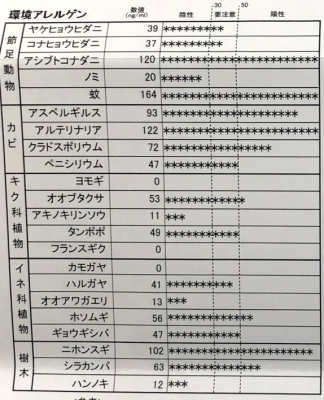 環境アレルゲン 数値 (ng/ml) 陰性 30 要注意 50 陽性
節足動物
ヤケヒョウヒダニ 39 **********
コナヒョウヒダニ 37 **********
アシブトコナダニ 120 **************************
ノミ 20 ******
蚊 164 **************************
カビ
アスペルギルス 93 **********************
アルテリナリア 122 **************************
クラドスポリウム 72 ******************
ペニシリウム 47 ************
キク科植物
ヨモギ 0
オオブタクサ 53 *************
アキノキリンソウ 11 ***
タンポポ 49 ************
フランスギク 0
イネ科植物
カモガヤ 0
ハルガヤ 41 ***********
オオアワガエリ 13 ***
ホソムギ 56 **************
ギョウギシバ 47 ************
樹木
ニホンスギ 102 *************************
シラカンバ 63 ****************
ハンノキ 12 ***